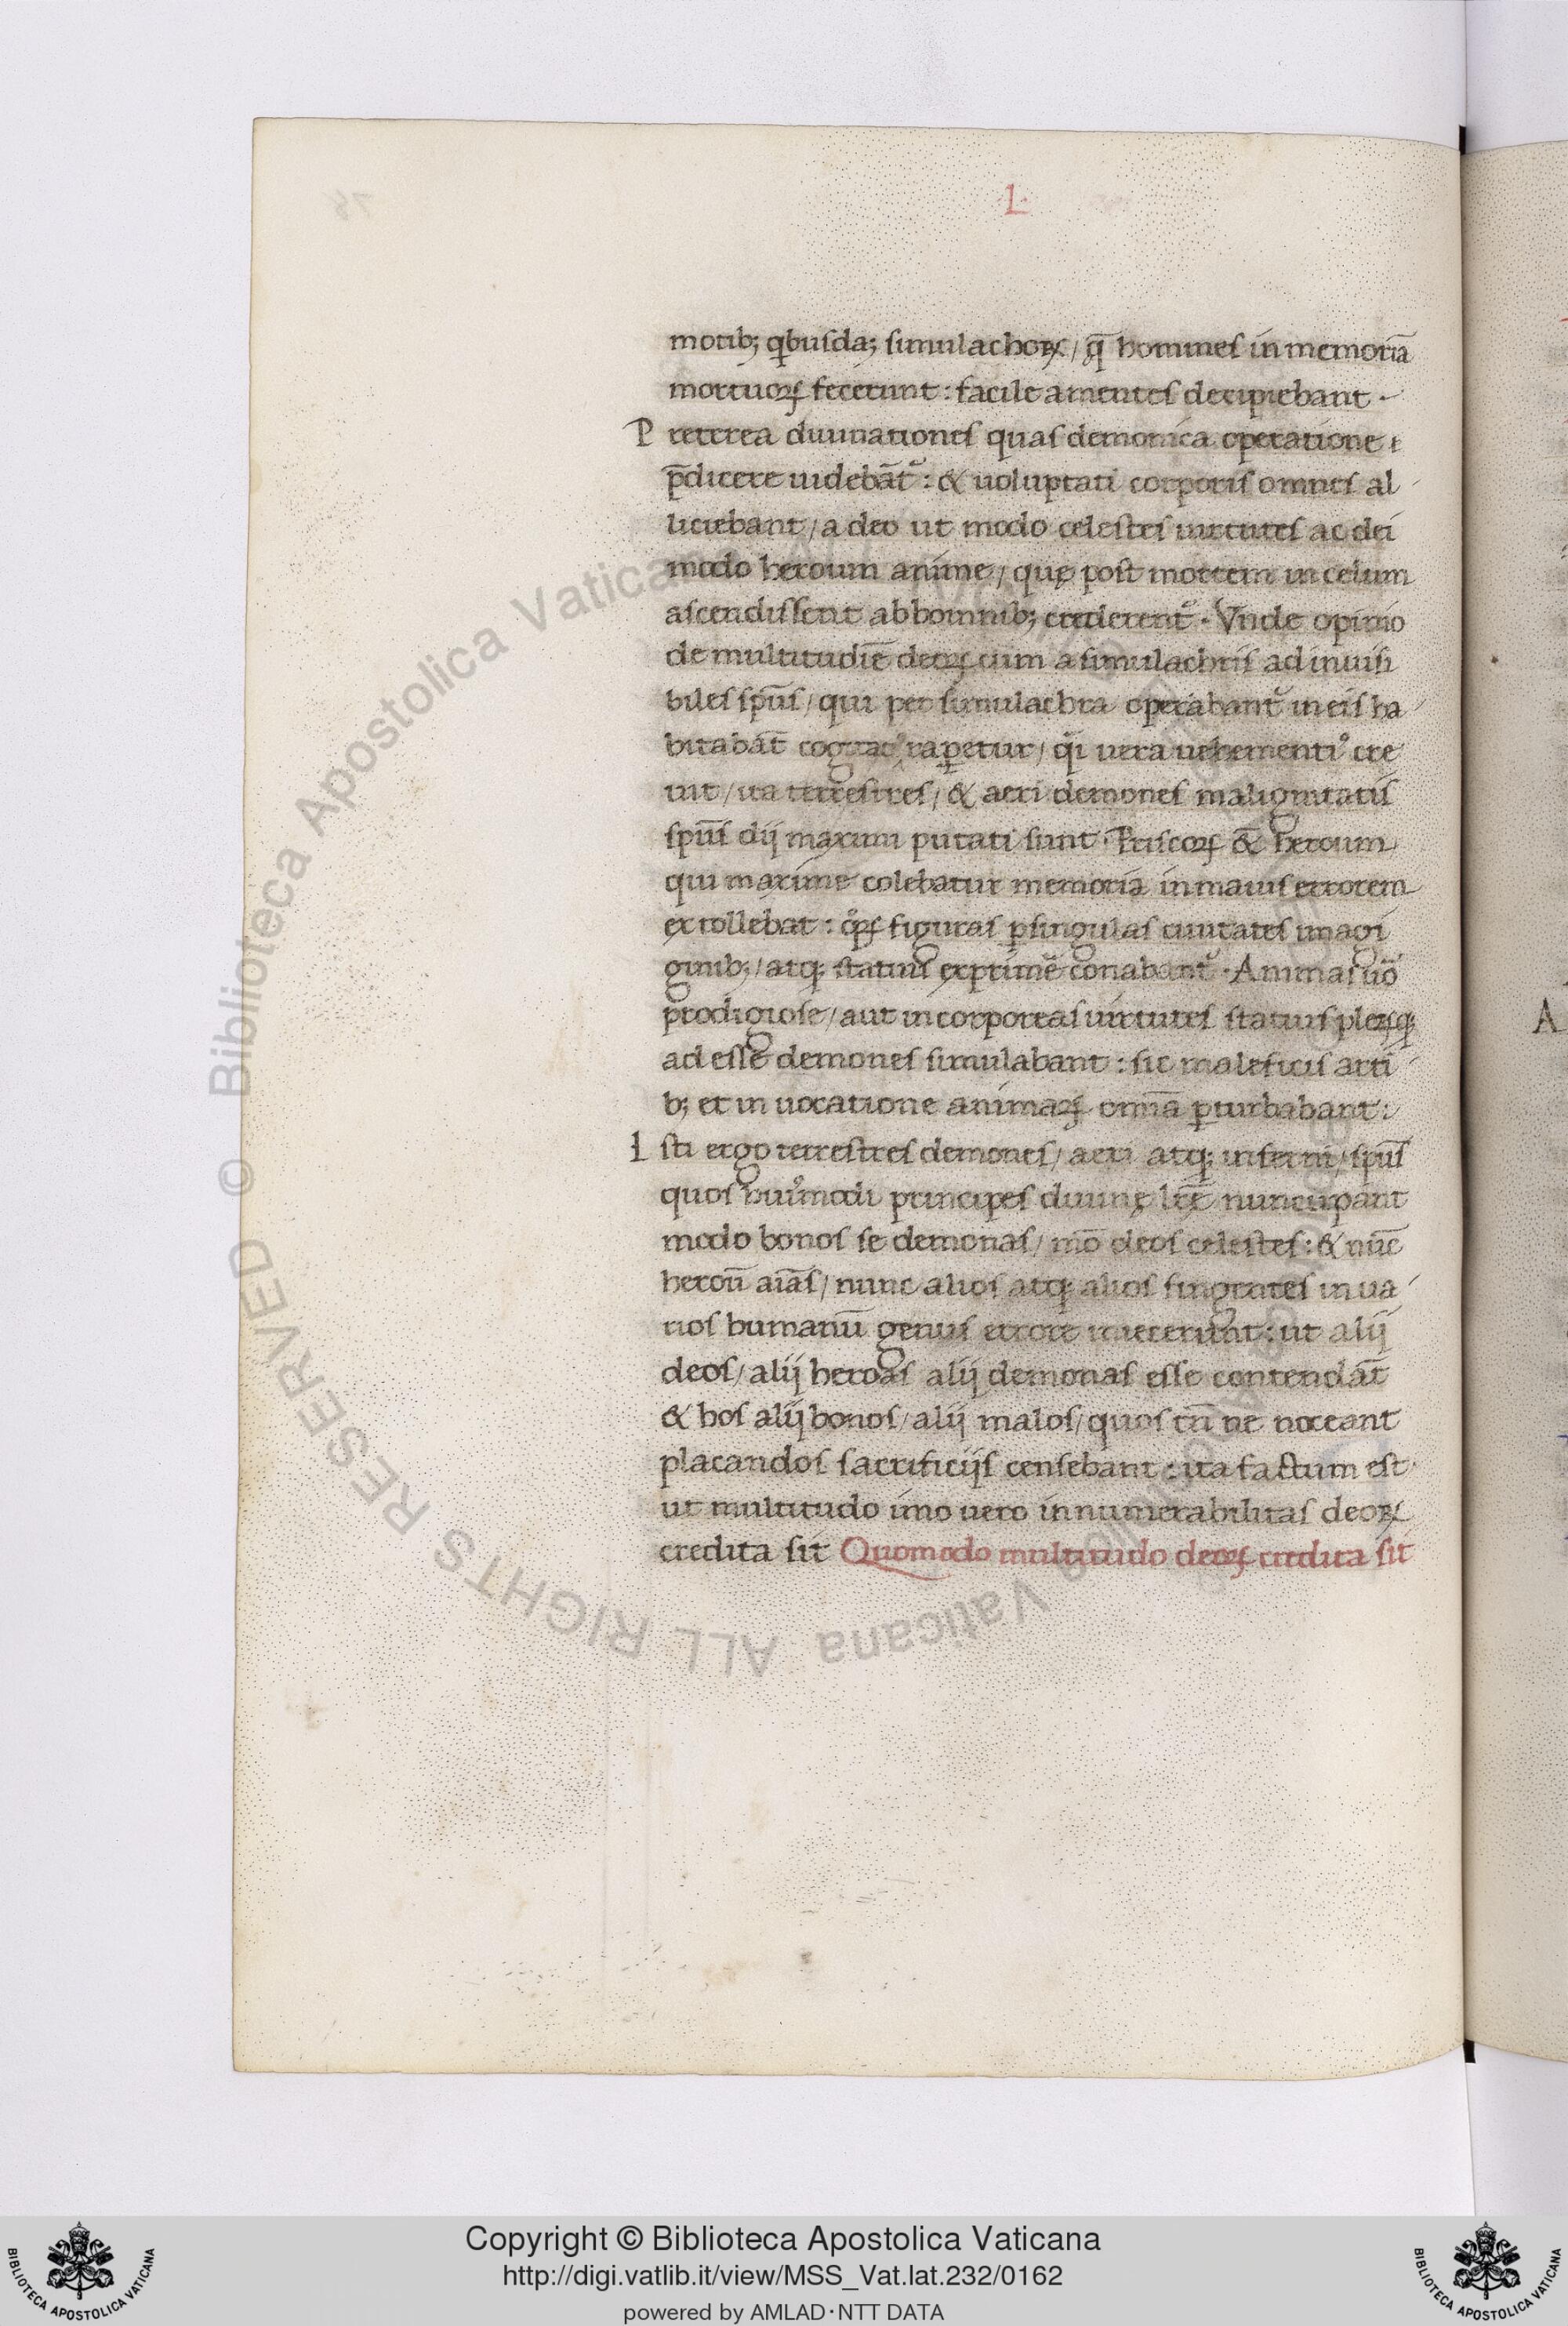 L
motib; qbusda; simulachoꝝ / q̄ homines in memoriā
mortuoꝝ fecerunt : facile amentes decipiebant ·
P reterea diuinationes quas demonica operatione
p̄dicere uidebāt᷑ : & uoluptati corporis omnes al
liciebant / adeo ut modo celestes uirtutes ac dei
modo heroum anime / quę post mortem in celum
ascendissent ab hominib; crederent᷑ · Vnde opinio
de multitudiē deoꝝ cum a simulachris ad inuisi
biles spūs / qui per simulachra operabant᷑ in eis ha
bitabāt raperetur / vera uehementi᷒ cre
uit / ita terrestres / & aeri demones malignitatis
spūs dij maximi putati sunt · Priscoꝝ & heroum
qui maxime colebatur memoria in maius errorem
extollebat : qͦꝝ figuras ꝑ singulas ciuitates imagi
ginib; / atq; statuis exprimē conabant᷑ · Animas uō
prodigiose / aut incorporeas uirtutes statuis pleꝝq;
adesse demones simulabant : sic maleficis arti
b; et in uocatione animaꝝ omīa ꝑturbabant :
I sti ergo terrestres demones / aeri atq; inferni / spūs
quos hui᷒modi principes diuinę lr̄ę nuncupant
modo bonos se demonas / mō deos celestes : & nūc
heroū aiās / nunc alios atq; alios fingentes in ua
rios humanū genus errore iniecerunt : ut alij
deos / alij heroas alij demonas esse contendāt
& hos alij bonos / alij malos / quos tn̄ ne noceant
placandos sacrificijs censebant : ita factum est
ut multitudo imo uero innumerabilitas deoꝝ
credita sit Quomodo multitudo deoꝝ credita sit
A
© Biblioteca Apostolica Vaticana ALL RIGHTS RESERVED
Copyright © Biblioteca Apostolica Vaticana
http://digi.vatlib.it/view/MSS_Vat.lat.232/0162
powered by AMLAD·NTT DATA
BIBLIOTECA APOSTOLICA VATICANA
BIBLIOTECA APOSTOLICA VATICANA